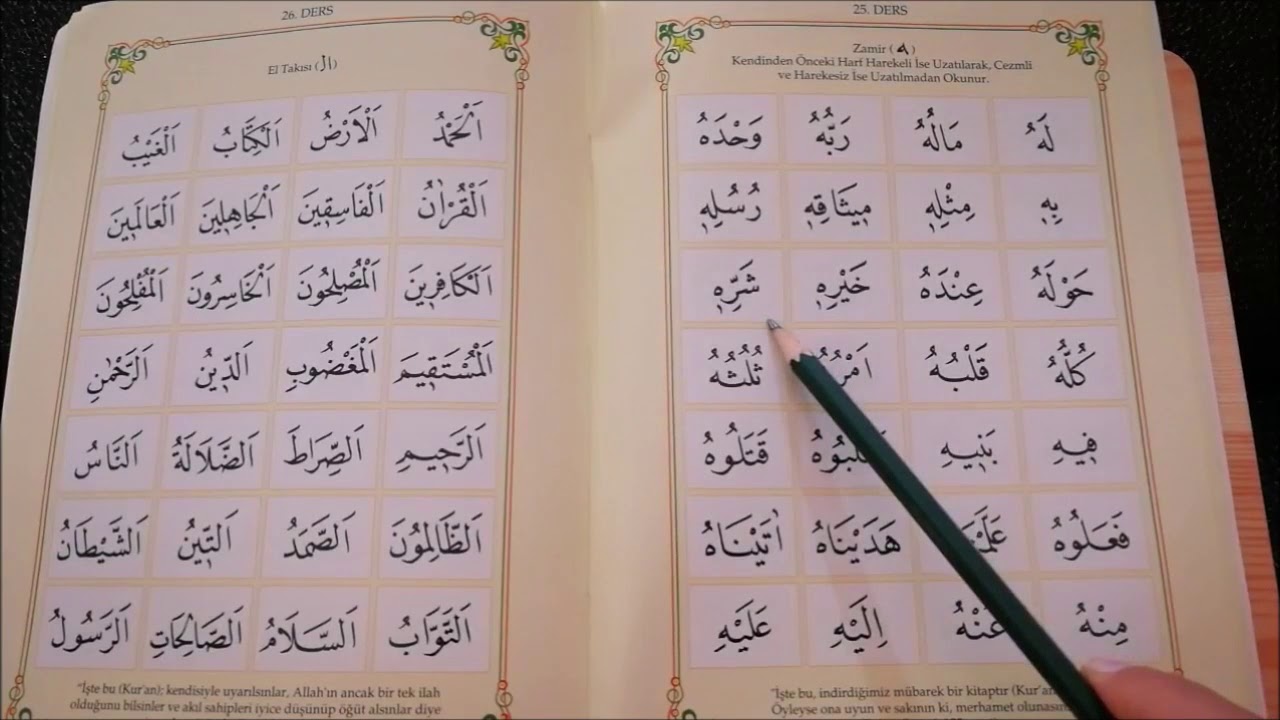 25. DERS
Zamir ( ه )
Kendinden Önceki Harf Harekeli İse Uzatılarak, Cezmli
ve Harekesiz İse Uzatılmadan Okunur.
لَهُ مَالُهُ رَبُّهُ وَحْدَهُ
بِهٖ مِثْلِهٖ مٖيثَاقِهٖ رُسُلِهٖ
حَوْلَهُ عِنْدَهُ خَيْرِهٖ شَرِّهٖ
كُلُّهُ قَلْبُهُ ثُلُثُهُ
فٖيهِ بَنٖيهِ قَتَلُوهُ
فَعَلُوهُ هَدَيْنَاهُ اٰتَيْنَاهُ
مِنْهُ عَنْهُ اِلَيْهِ عَلَيْهِ
"İşte bu, indirdiğimiz mübarek bir kitaptır
Öyleyse ona uyun ve sakının ki, merhamet
26. DERS
El Takısı ( ال )
اَلْحَمْدُ اَلْاَرْضُ اَلْكِتَابُ اَلْغَيْبُ
اَلْقُرْاٰنُ اَلْفَاسِقٖينَ اَلْجَاهِلٖينَ اَلْعَالَمٖينَ
اَلْكَافِرٖينَ اَلْمُصْلِحُونَ اَلْخَاسِرُونَ اَلْمُفْلِحُونَ
اَلْمُسْتَقٖيمَ اَلْمَغْضُوبِ اَلدّٖينُ اَلرَّحْمٰنِ
اَلرَّحٖيمِ اَلصِّرَاطَ اَلضَّلَالَةُ اَلنَّاسُ
اَلظَّالِمُونَ اَلصَّمَدُ اَلتّٖينُ اَلشَّيْطَانُ
اَلتَّوَّابُ اَلسَّلَامُ اَلصَّالِحَاتِ اَلرَّسُولُ
"İşte bu (Kur'an); kendisiyle uyarılsınlar, Allah'ın ancak bir tek ilah
olduğunu bilsinler ve akıl sahipleri iyice düşünüp öğüt alsınlar diye